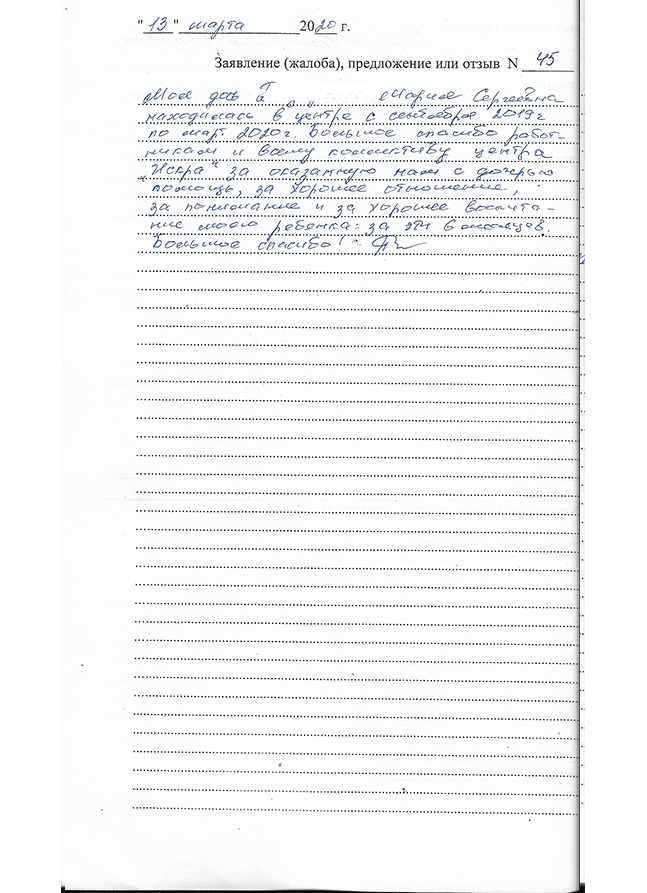 "13" марта 2020 г.
Заявление (жалоба), предложение или отзыв N 45
Моя доч Мария Сергеевна
находилась в центре с сентября 2019г
по март 2020г. Большое спасибо работ-
никам и всему коллективу центра
„Искра" за оказанную нам с дочерью
помощь, за хорошее отношение,
за понимание и за хорошее воспита-
ние моего ребенка за эти 6 месяцев.
Большое спасибо!